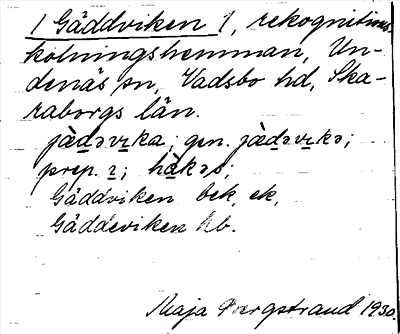 1 Gäddviken 1, rekognitions-
kolningshemman, Un-
denäs sn, Vadsbo hd, Ska-
raborgs län.
jàd̲əvɪ̲ka; gen. jàd̲əvɪ̲kə;
prep. ɪ̲; hà̲kəs;
Gäddviken bek, ek,
Gäddeviken hb.
Maja Bergstrand 1930.